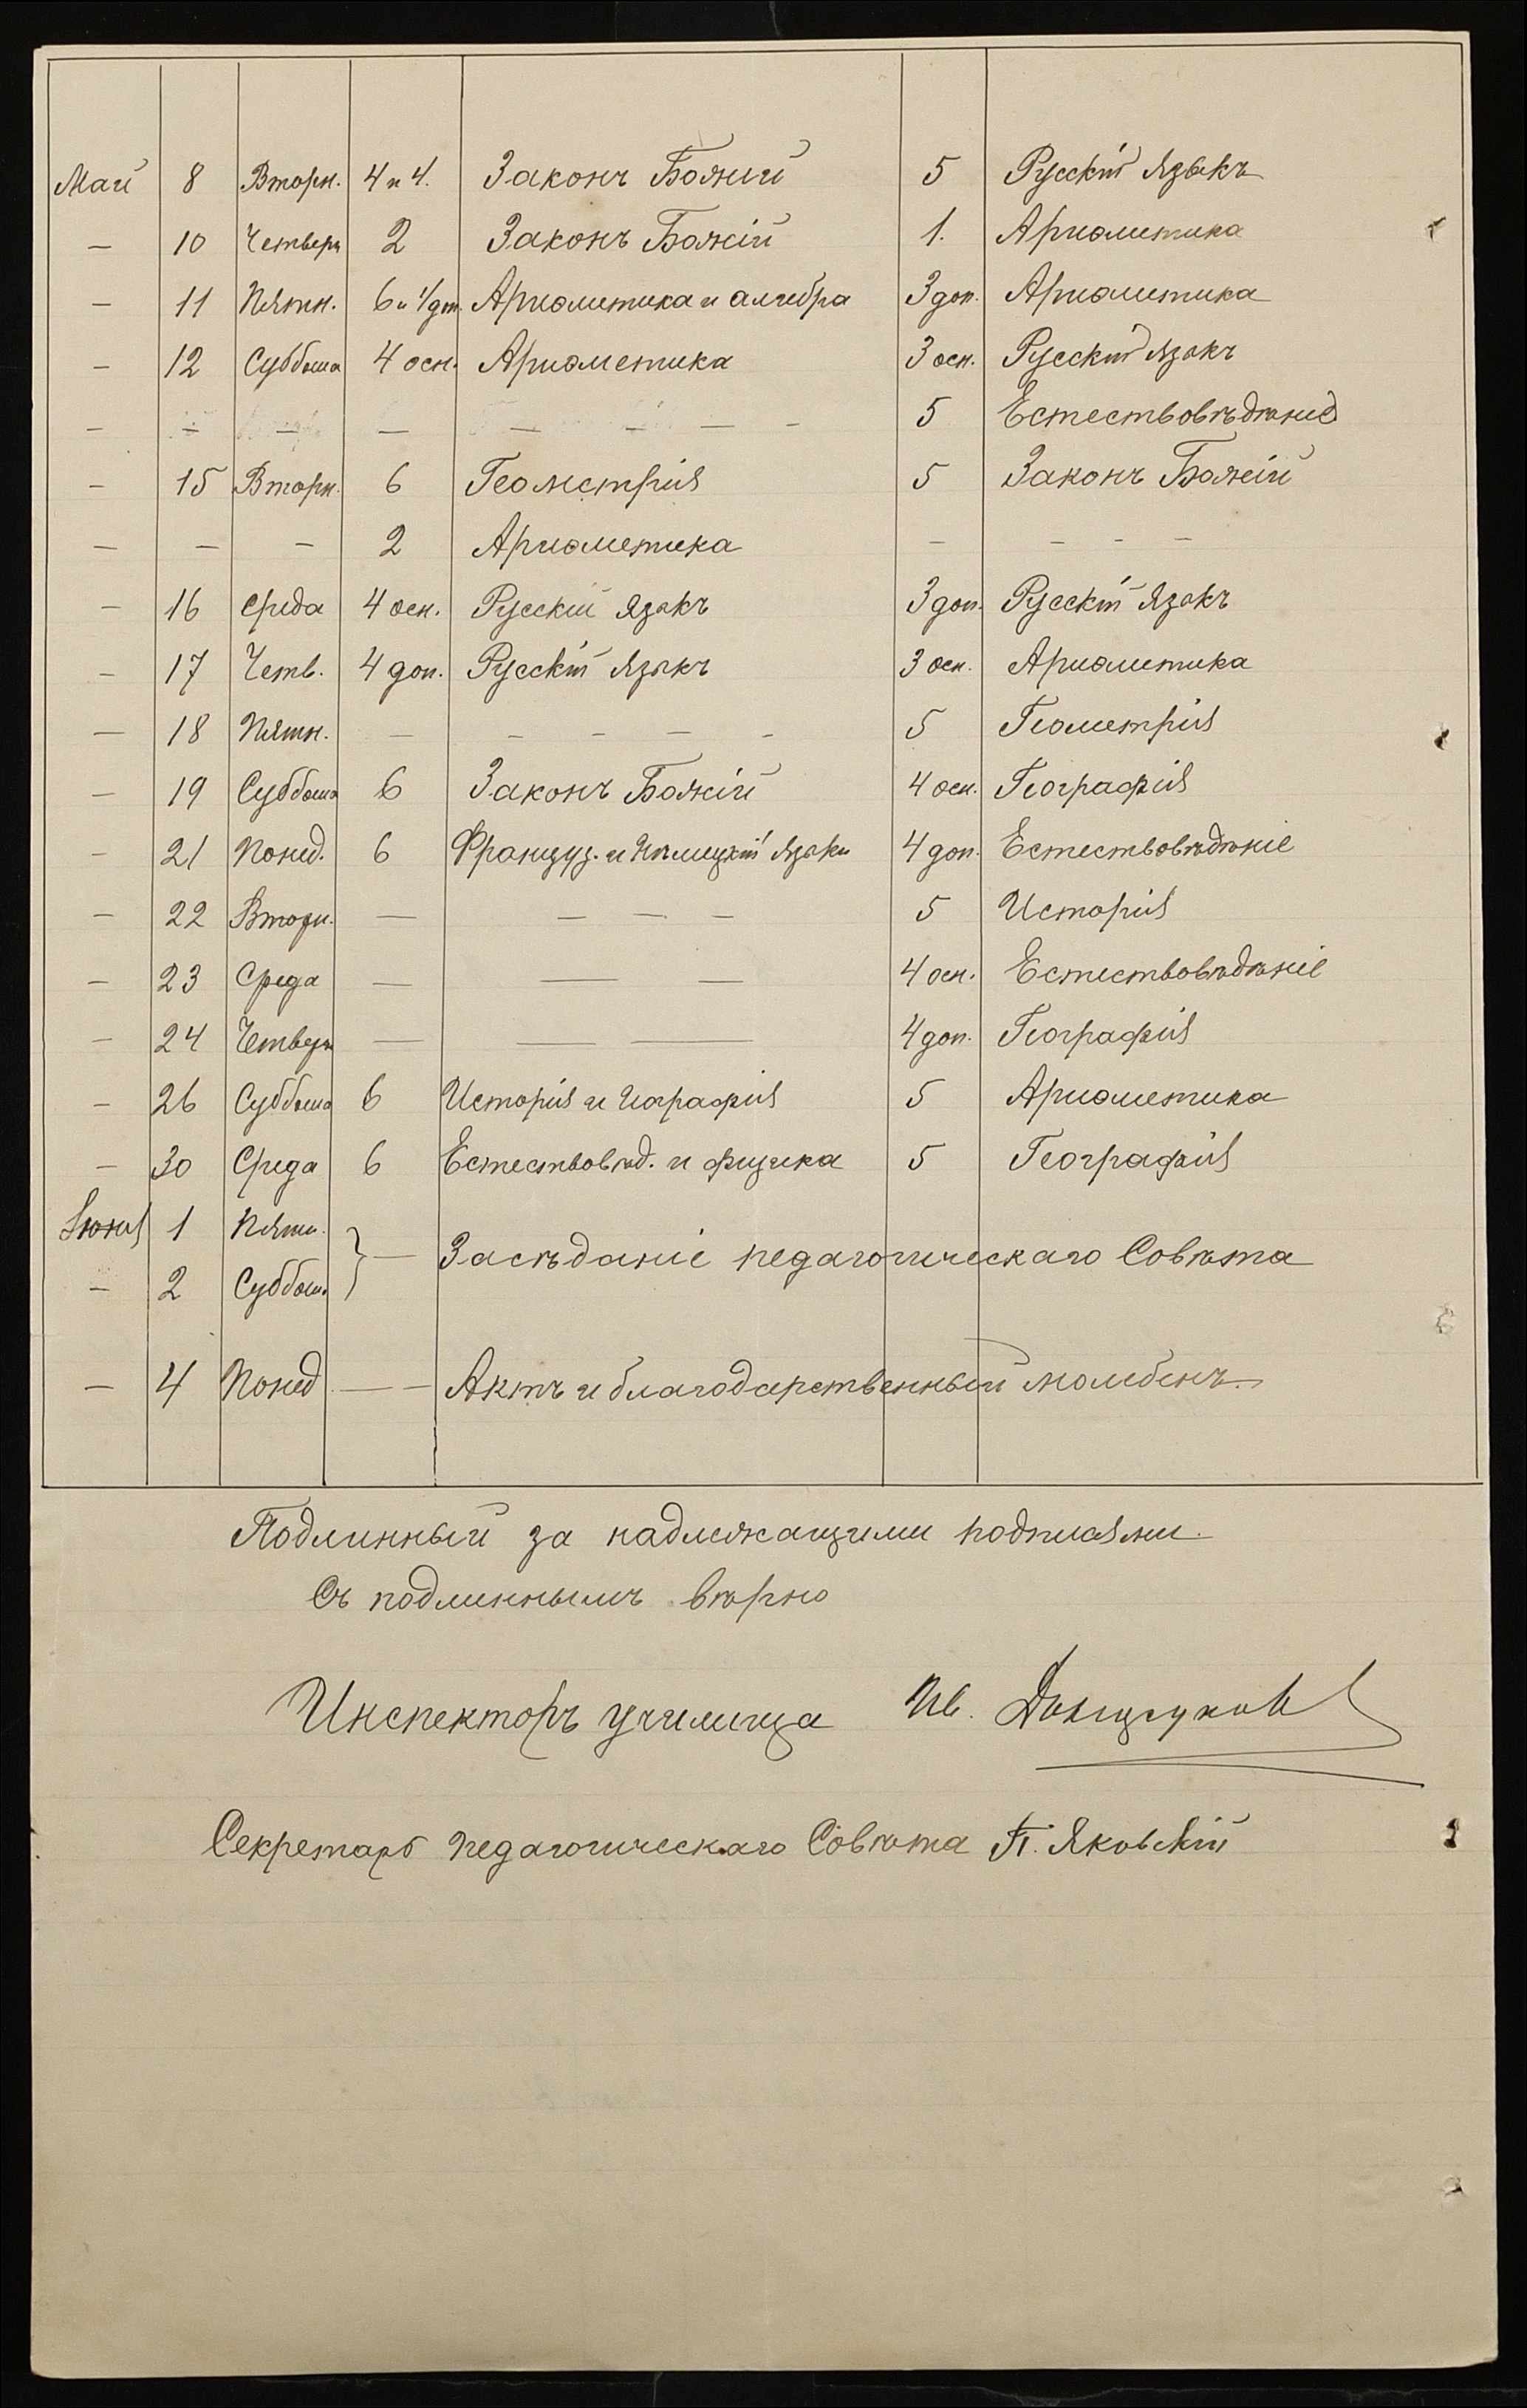 Май 8 Вторн. 4 и 4. Законъ Божий 5 Русскій Языкъ
— 10 Четверг 2 Законъ Божій 1. Ариѳметика
— 11 Пятн. 6 и 1/доп. Ариѳметика и алгебра 3 доп. Ариѳметика
— 12 Суббота 4 осн. Ариѳметика 3 осн. Русскій языкъ
— — — — — — — - 5 Естествовѣдѣніе
— 15 Вторн. 6 Геометрія 5 Законъ Божій
— — - 2 Ариѳметика — - - -
— 16 Среда 4 осн. Русскій языкъ 3 доп. Русскій языкъ
— 17 Четв. 4 доп. Русскій языкъ 3 осн. Ариѳметика
— 18 Пятн. — - - — - 5 Геометрія
— 19 Суббота 6 Законъ Божій 4 осн. Географія
— 21 Понед. 6 Француз. и Нѣмецкій языки 4 доп. Естествовѣдѣніе
— 22 Вторн. — — — - 5 Исторія
— 23 Среда — — — 4 осн. Естествовѣдѣніе
— 24 Четверг — — — 4 доп. Географія
— 26 Суббота 6 Исторія и географія 5 Ариѳметика
— 30 Среда 6 Естествовѣд. и физика 5 Географія
Іюня 1 Пятн.
} — Засѣданіе педагогическаго Совѣта
— 2 Суббот.
— 4 Понед — — Актъ и благодарственный молебенъ.
Подлинный за надлежащими подписями.
Съ подлиннымъ вѣрно
Инспекторъ училища Ив.
Секретарь педагогическаго Совѣта П. Яковскій